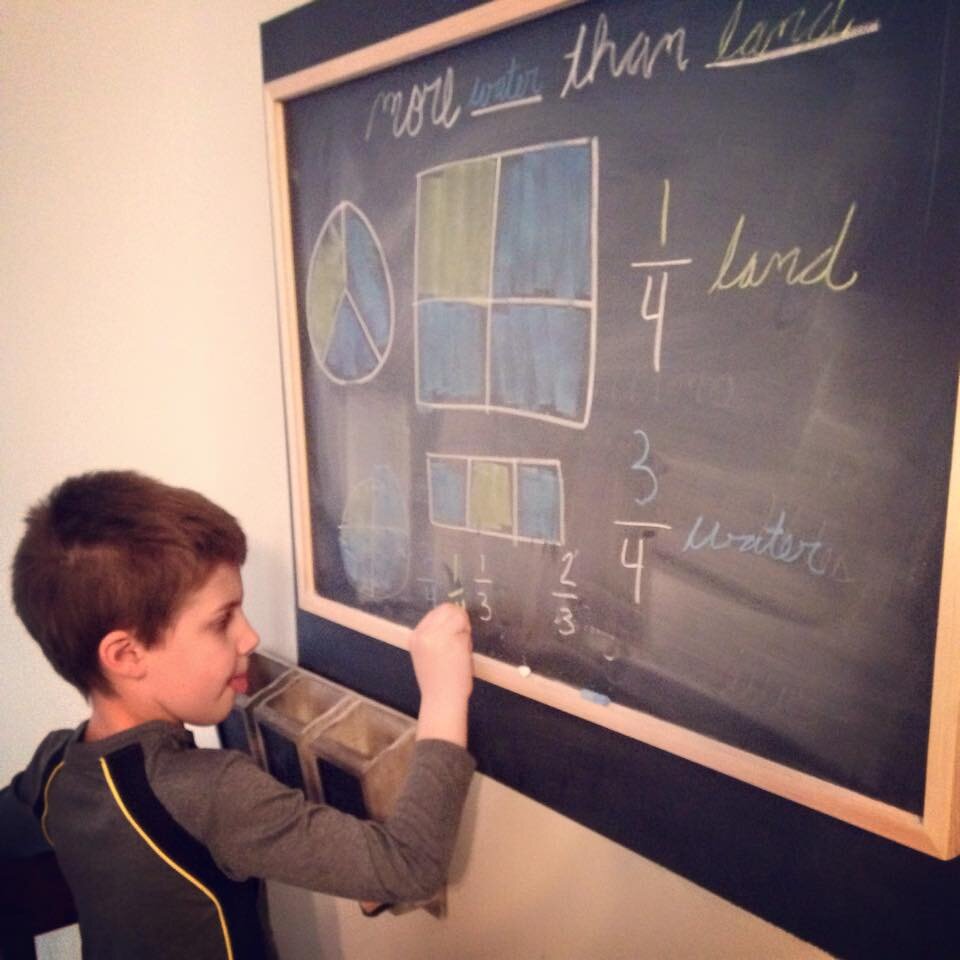 more water than land
1
4
land
3
4
water
1
1
3
2
3